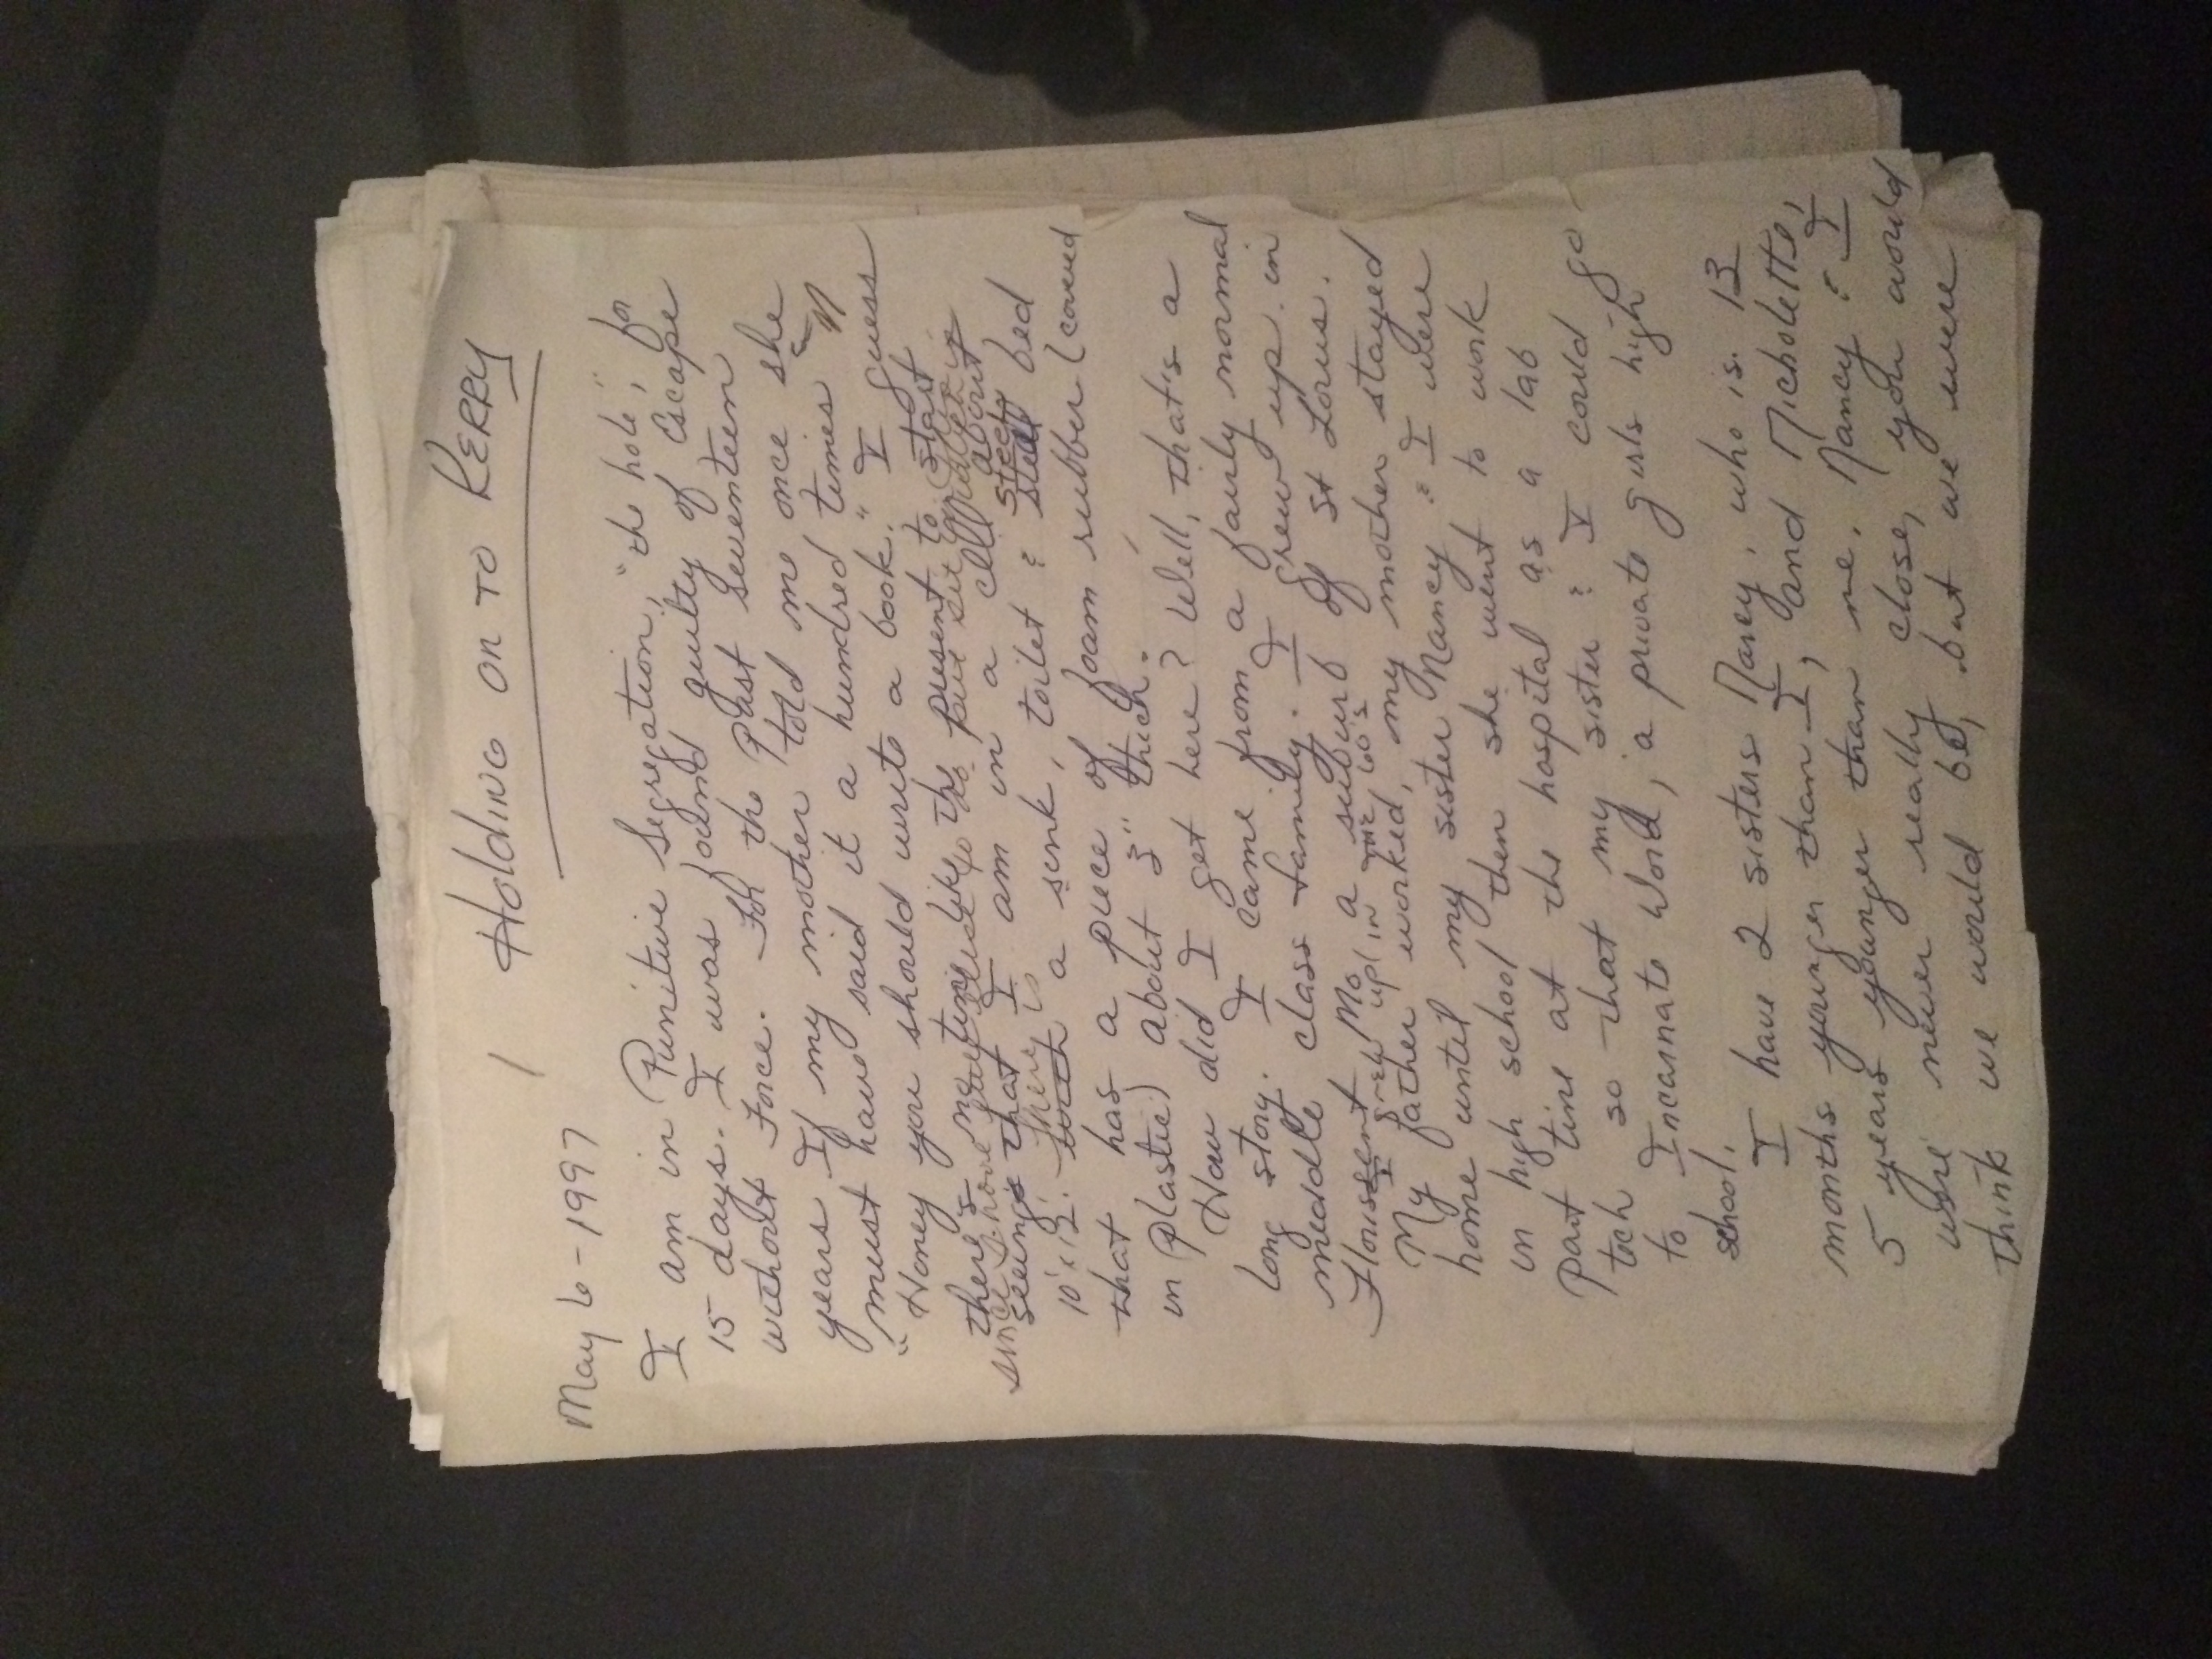 1 Holding on to Kerry
May 6-1997
I am in Punitive Segregation, "the hole", for
15 days. I was found guilty of Escape
without Force. For the Past Seventeen
years If my mother told me once she
must have said it a hundred times
"Honey you should write a book." I guess
there's no time like the present to start
since I have
seeing that I am in a cell about
10'x12'. There is a sink, toilet & steel bed
that has a piece of foam rubber (covered
in Plastic) about 3" thick.
How did I get here? Well, that's a
long story. I came from a fairly normal
middle class family. I grew up in
Florissent Mo a suburb of St Louis.
I grew up in the 60's
My father worked, my mother stayed
home until my sister Nancy & I were
in high school then she went to work
Part time at the hospital as a lab
tech so that my sister & I could go
to Incarnate Word, a private girls high
school.
I have 2 sisters Nancy, who is 13
months younger than I, and Nicholette,
5 years younger than me. Nancy & I
were never really close, you would
think we would be, but we were